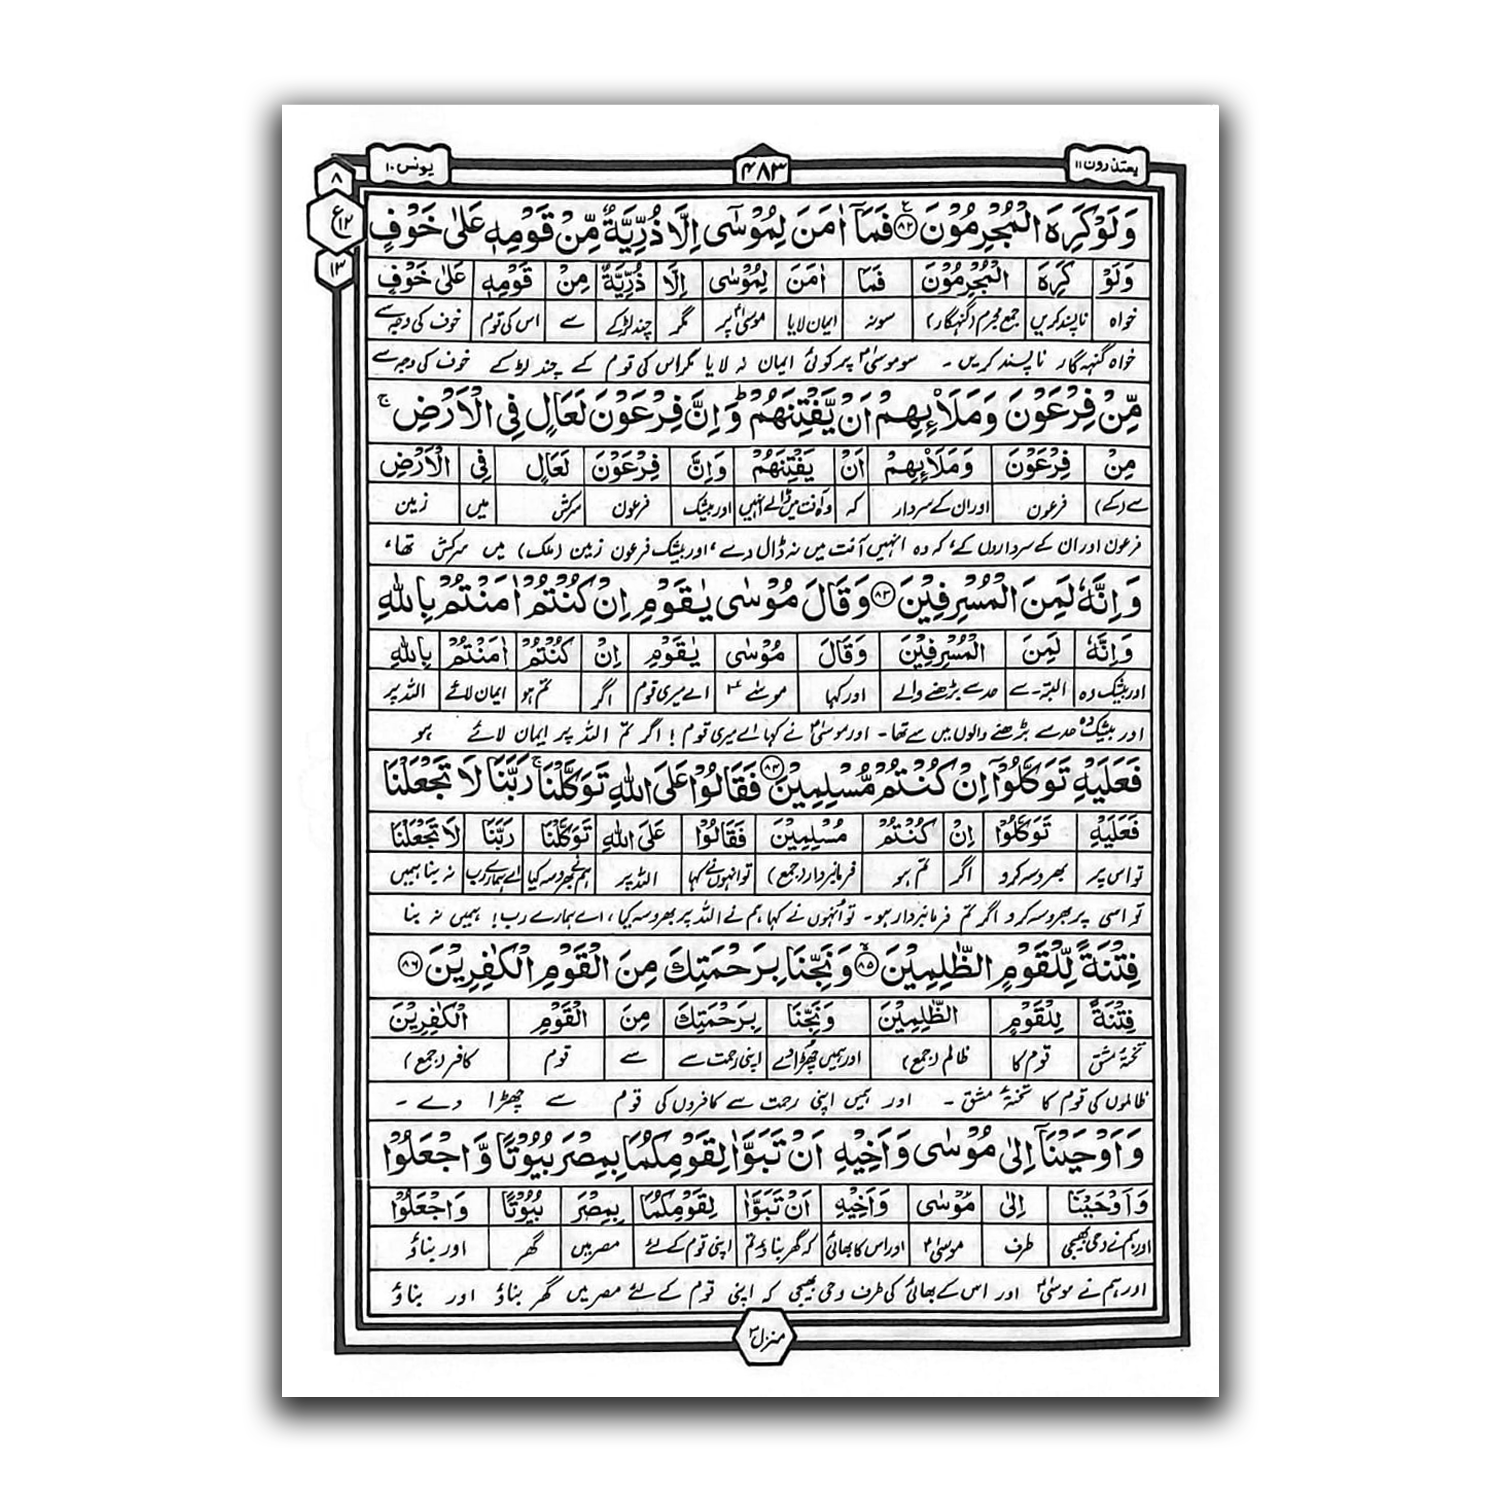 یعتذرون ۱۱
۴۸۳
یونس ۱۰
۸
ع ۱۲
۱۳
وَلَوْ كَرِهَ الْمُجْرِمُوْنَ ۝۸۲ فَمَاۤ اٰمَنَ لِمُوْسٰۤى اِلَّا ذُرِّيَّةٌ مِّنْ قَوْمِهٖ عَلٰى خَوْفٍ
وَلَوْ كَرِهَ الْمُجْرِمُوْنَ فَمَا اٰمَنَ لِمُوْسٰى اِلَّا ذُرِّيَّةٌ مِنْ قَوْمِهٖ عَلٰى خَوْفٍ
خواہ ناپسند کریں جمع مجرم (گنہگار) سو نہ ایمان لایا موسیٰؑ پر مگر چند لڑکے سے اس کی قوم خوف کی وجہ سے
خواہ گنہگار ناپسند کریں ۔ سو موسیٰؑ پر کوئی ایمان نہ لایا مگر اس کی قوم کے چند لڑکے خوف کی وجہ سے
مِّنْ فِرْعَوْنَ وَمَلَا۟ئِهِمْ اَنْ يَّفْتِنَهُمْ ؕ وَاِنَّ فِرْعَوْنَ لَعَالٍ فِى الْاَرْضِ ۚ
مِنْ فِرْعَوْنَ وَمَلَا۟ئِهِمْ اَنْ يَفْتِنَهُمْ وَاِنَّ فِرْعَوْنَ لَعَالٍ فِى الْاَرْضِ
سے (کے) فرعون اور ان کے سردار کہ وہ آفت میں ڈالے انہیں اور بیشک فرعون سرکش میں زمین
فرعون اور ان کے سرداروں کے، کہ وہ انہیں آفت میں نہ ڈال دے، اور بیشک فرعون زمین (ملک) میں سرکش تھا،
وَاِنَّهٗ لَمِنَ الْمُسْرِفِيْنَ ۝۸۳ وَقَالَ مُوْسٰى يٰقَوْمِ اِنْ كُنْتُمْ اٰمَنْتُمْ بِاللّٰهِ
وَاِنَّهٗ لَمِنَ الْمُسْرِفِيْنَ وَقَالَ مُوْسٰى يٰقَوْمِ اِنْ كُنْتُمْ اٰمَنْتُمْ بِاللّٰهِ
اور بیشک وہ البتہ۔سے حد سے بڑھنے والے اور کہا موسیٰؑ اے میری قوم اگر تم ہو ایمان لائے اللہ پر
اور بیشک وہ حد سے بڑھنے والوں میں سے تھا ۔ اور موسیٰؑ نے کہا اے میری قوم ! اگر تم اللہ پر ایمان لائے ہو
فَعَلَيْهِ تَوَكَّلُوْۤا اِنْ كُنْتُمْ مُّسْلِمِيْنَ ۝۸۴ فَقَالُوْا عَلَى اللّٰهِ تَوَكَّلْنَا ۚ رَبَّنَا لَا تَجْعَلْنَا
فَعَلَيْهِ تَوَكَّلُوْا اِنْ كُنْتُمْ مُسْلِمِيْنَ فَقَالُوْا عَلَى اللّٰهِ تَوَكَّلْنَا رَبَّنَا لَا تَجْعَلْنَا
تو اس پر بھروسہ کرو اگر تم ہو فرمانبردار (جمع) تو انہوں نے کہا اللہ پر ہم نے بھروسہ کیا اے ہمارے رب نہ بنا ہمیں
تو اسی پر بھروسہ کرو اگر تم فرمانبردار ہو ۔ تو اُنہوں نے کہا ہم نے اللہ پر بھروسہ کیا ، اے ہمارے رب! ہمیں نہ بنا
فِتْنَةً لِّلْقَوْمِ الظّٰلِمِيْنَ ۝۸۵ وَنَجِّنَا بِرَحْمَتِكَ مِنَ الْقَوْمِ الْكٰفِرِيْنَ ۝۸۶
فِتْنَةً لِلْقَوْمِ الظّٰلِمِيْنَ وَنَجِّنَا بِرَحْمَتِكَ مِنَ الْقَوْمِ الْكٰفِرِيْنَ
تختۂ مشق قوم کا ظالم (جمع) اور ہمیں چھڑا دے اپنی رحمت سے سے قوم کافر (جمع)
ظالموں کی قوم کا تختۂ مشق ۔ اور ہمیں اپنی رحمت سے کافروں کی قوم سے چھڑا دے ۔
وَاَوْحَيْنَاۤ اِلٰى مُوْسٰى وَاَخِيْهِ اَنْ تَبَوَّاٰ لِقَوْمِكُمَا بِمِصْرَ بُيُوْتًا وَّاجْعَلُوْا
وَاَوْحَيْنَا اِلٰى مُوْسٰى وَاَخِيْهِ اَنْ تَبَوَّاٰ لِقَوْمِكُمَا بِمِصْرَ بُيُوْتًا وَاجْعَلُوْا
اور ہم نے وحی بھیجی طرف موسیٰؑ اور اس کا بھائی کہ گھر بناؤ تم اپنی قوم کے لئے مصر میں گھر اور بناؤ
اور ہم نے موسیٰؑ اور اس کے بھائی کی طرف وحی بھیجی کہ اپنی قوم کے لئے مصر میں گھر بناؤ اور بناؤ
منزل ۳